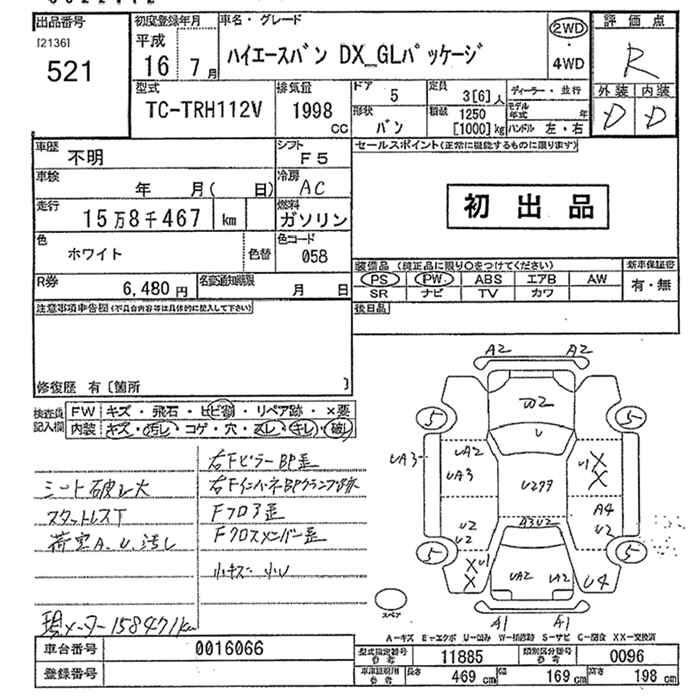 出品番号
[2136]
521
初度登録年月
平成
16 7月
車名・グレード
ハイエースバン DX_GLパッケージ
2WD
4WD
評価点
R
外装 内装
D D
型式
TC-TRH112V
排気量
1998 CC
ドア 5
形状 バン
定員 3[6]人
積載 1250 [1000]kg
ディーラー・並行
モデル年式 年
ハンドル 左・右
車歴 不明
シフト F5
車検 年 月( 日)
冷房 AC
走行 15万8千467 km
燃料 ガソリン
色 ホワイト 色替
色コード 058
R券 6,480円
名変通知期限 月 日
セールスポイント(正常に機能するものに限ります)
初出品
装備品(純正品に限り○をつけてください)
PS PW ABS エアB AW
SR ナビ TV カワ
新車保証書
有・無
注意事項申告欄(不具合内容等は具体的に記入して下さい)
後日品
修復歴 有〔箇所 〕
検査員記入欄
FW キズ・飛石・ヒビ割・リペア跡・×要
内装 キズ・汚レ・コゲ・穴・スレ・キレ・破レ
シート破レ大
スタットレスT
荷室A.U.汚レ
右FピラーBP歪
右FインパネBPクランプ跡
Fフロア歪
Fクロスメンバー歪
小キズ 小U
現メーター158471km
A2 A2
5 5
W2
U
UA2
UA3
UA3
U1 X X
U299
A4
U2
U2
U2
A3U2
5 5
U1
X X
UA2 UA2
U4
A1 A1
スペア
A-キズ E-エクボ U-凹み W-補修跡 S-サビ C-腐食 XX-交換済
車台番号 0016066
登録番号
型式指定番号 参考 11885
類別区分番号 参考 0096
車車証明用 参考
長さ 469 cm 幅 169 cm 高さ 198 cm